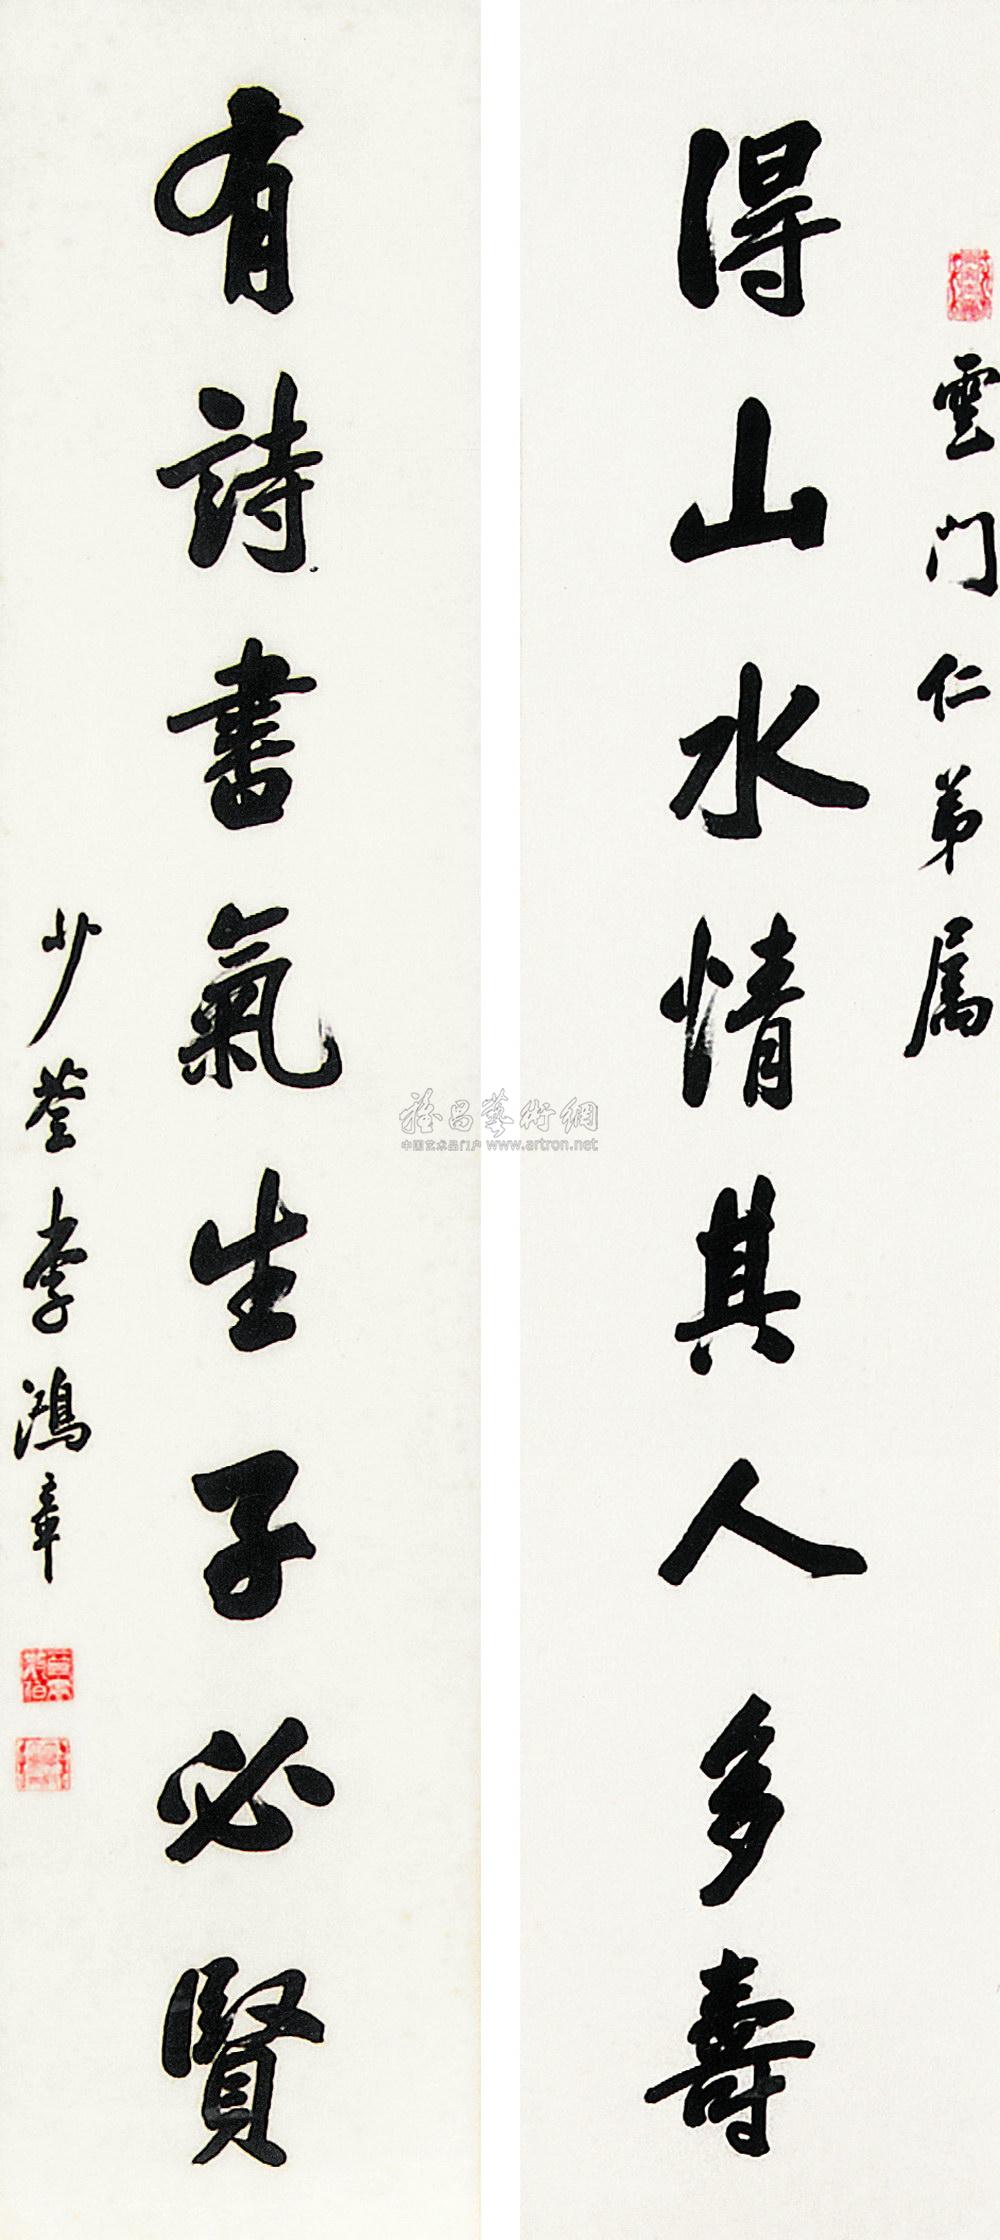 雲門仁弟属
得山水情其人多壽
有詩書氣生子必賢
少荃李鴻章
雅昌藝術網
中国艺术品门户 www.artron.net